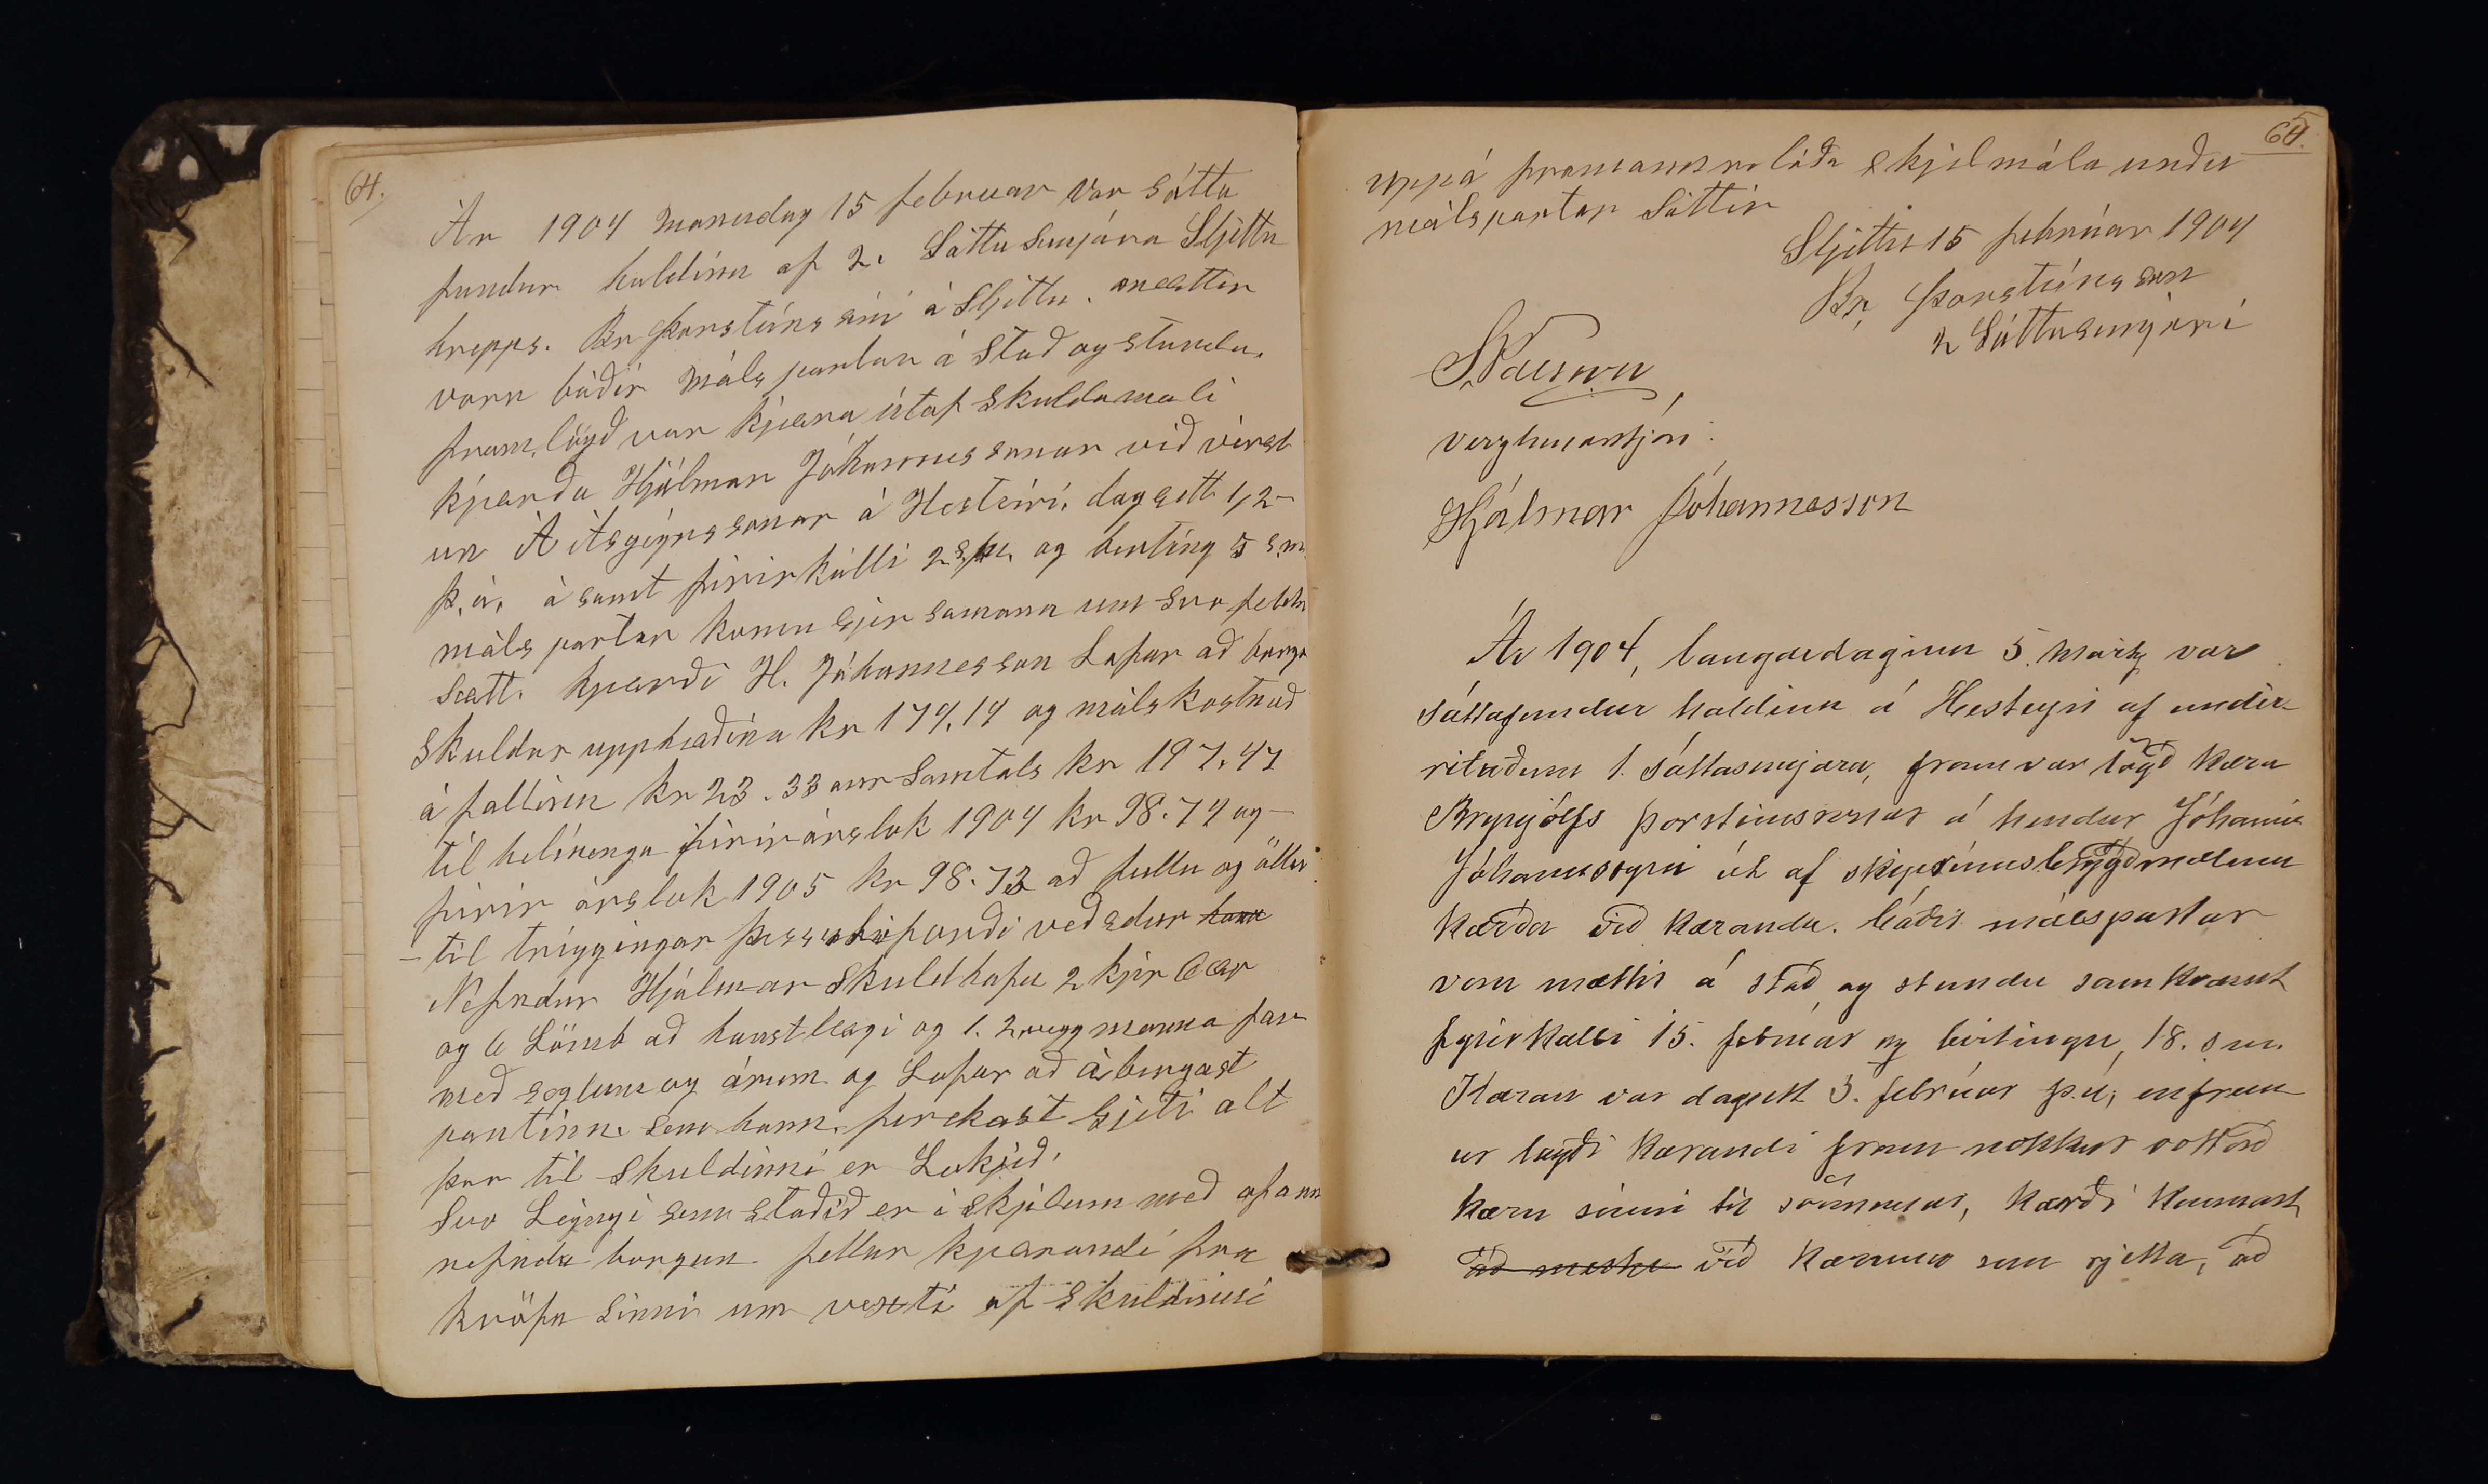 64.
Ár 1904 manudag 15 februar var sátta
fundur haldinn af 2. Sáttasemjara Sljettu
hrepps. Br Þorsteinssini á Sljettu. mættir
voru báðir málspartar á stað og stundu.
fram,lögð var kjæra útaf skuldamali
kjærða Hjálmar Jóhannessonar við verzl
un Á Ásgeirssonar á Hesteiri. dagsett 1/2-
þ.á. ásamt firirkalli 2 s.m. og birting 5 s.m.
málspartar komu sjer samann um svo felda
sætt. kjærði H. Jóhannesson Lofar að borga
skuldar upphæðina kr 174.14 og málskostnað
áfallinn kr 23.33 aur Samtals kr 197.47
til helminga firir árslok 1904 kr 98.74 og
firir árslok 1905 kr 98.73 að fullu og öllu
- til triggingar þessu veðsetur hann
Nefndur Hjálmar Skuldhafa 2 kjir 6 ær
og 6 Lömb að haustlægi og 1. 2 manna far
með seglum og árum og Lofar að ábyrgast
pantinn sem hann ferekast gjeti alt
þar til skuldinni er Lokjið.
Svo Leingi sem staðið er i skjilum með ofann
nefnda borgun fellur kjærandi fra
kröfu sinni um vexti af skuldinni
65.
uppá framannrelaða skjilmála urðu
málspartar Sáttir
Sljettu 15 februar 1904
Br, Þorsteinsson
2 Sáttasemjari
verzlunarstjóri
Hjálmar Jóhannesson
Ár 1904, laugardaginn 5. marz var
sáttafundur haldinn á Hesteyri af undir-
rituðum 1. sáttasemjara, fram var lögð kæra
Brynjólfs Þorsteinssonar á hendur Jóhanni
Jóhannssyni út af
kærða við kæranda. báðir málspartar
voru mættir á stað og stundu samkvæmt
fyrirkalli 15. febrúar og birtingu 18. s.m.
Kæran var dagsett 3. febrúar þ.á; enfrem
ur lagði kærandi fram nokkur vottorð
kæru sinni til sönnunar, kærði kannast
við kæruna sem rjetta, að